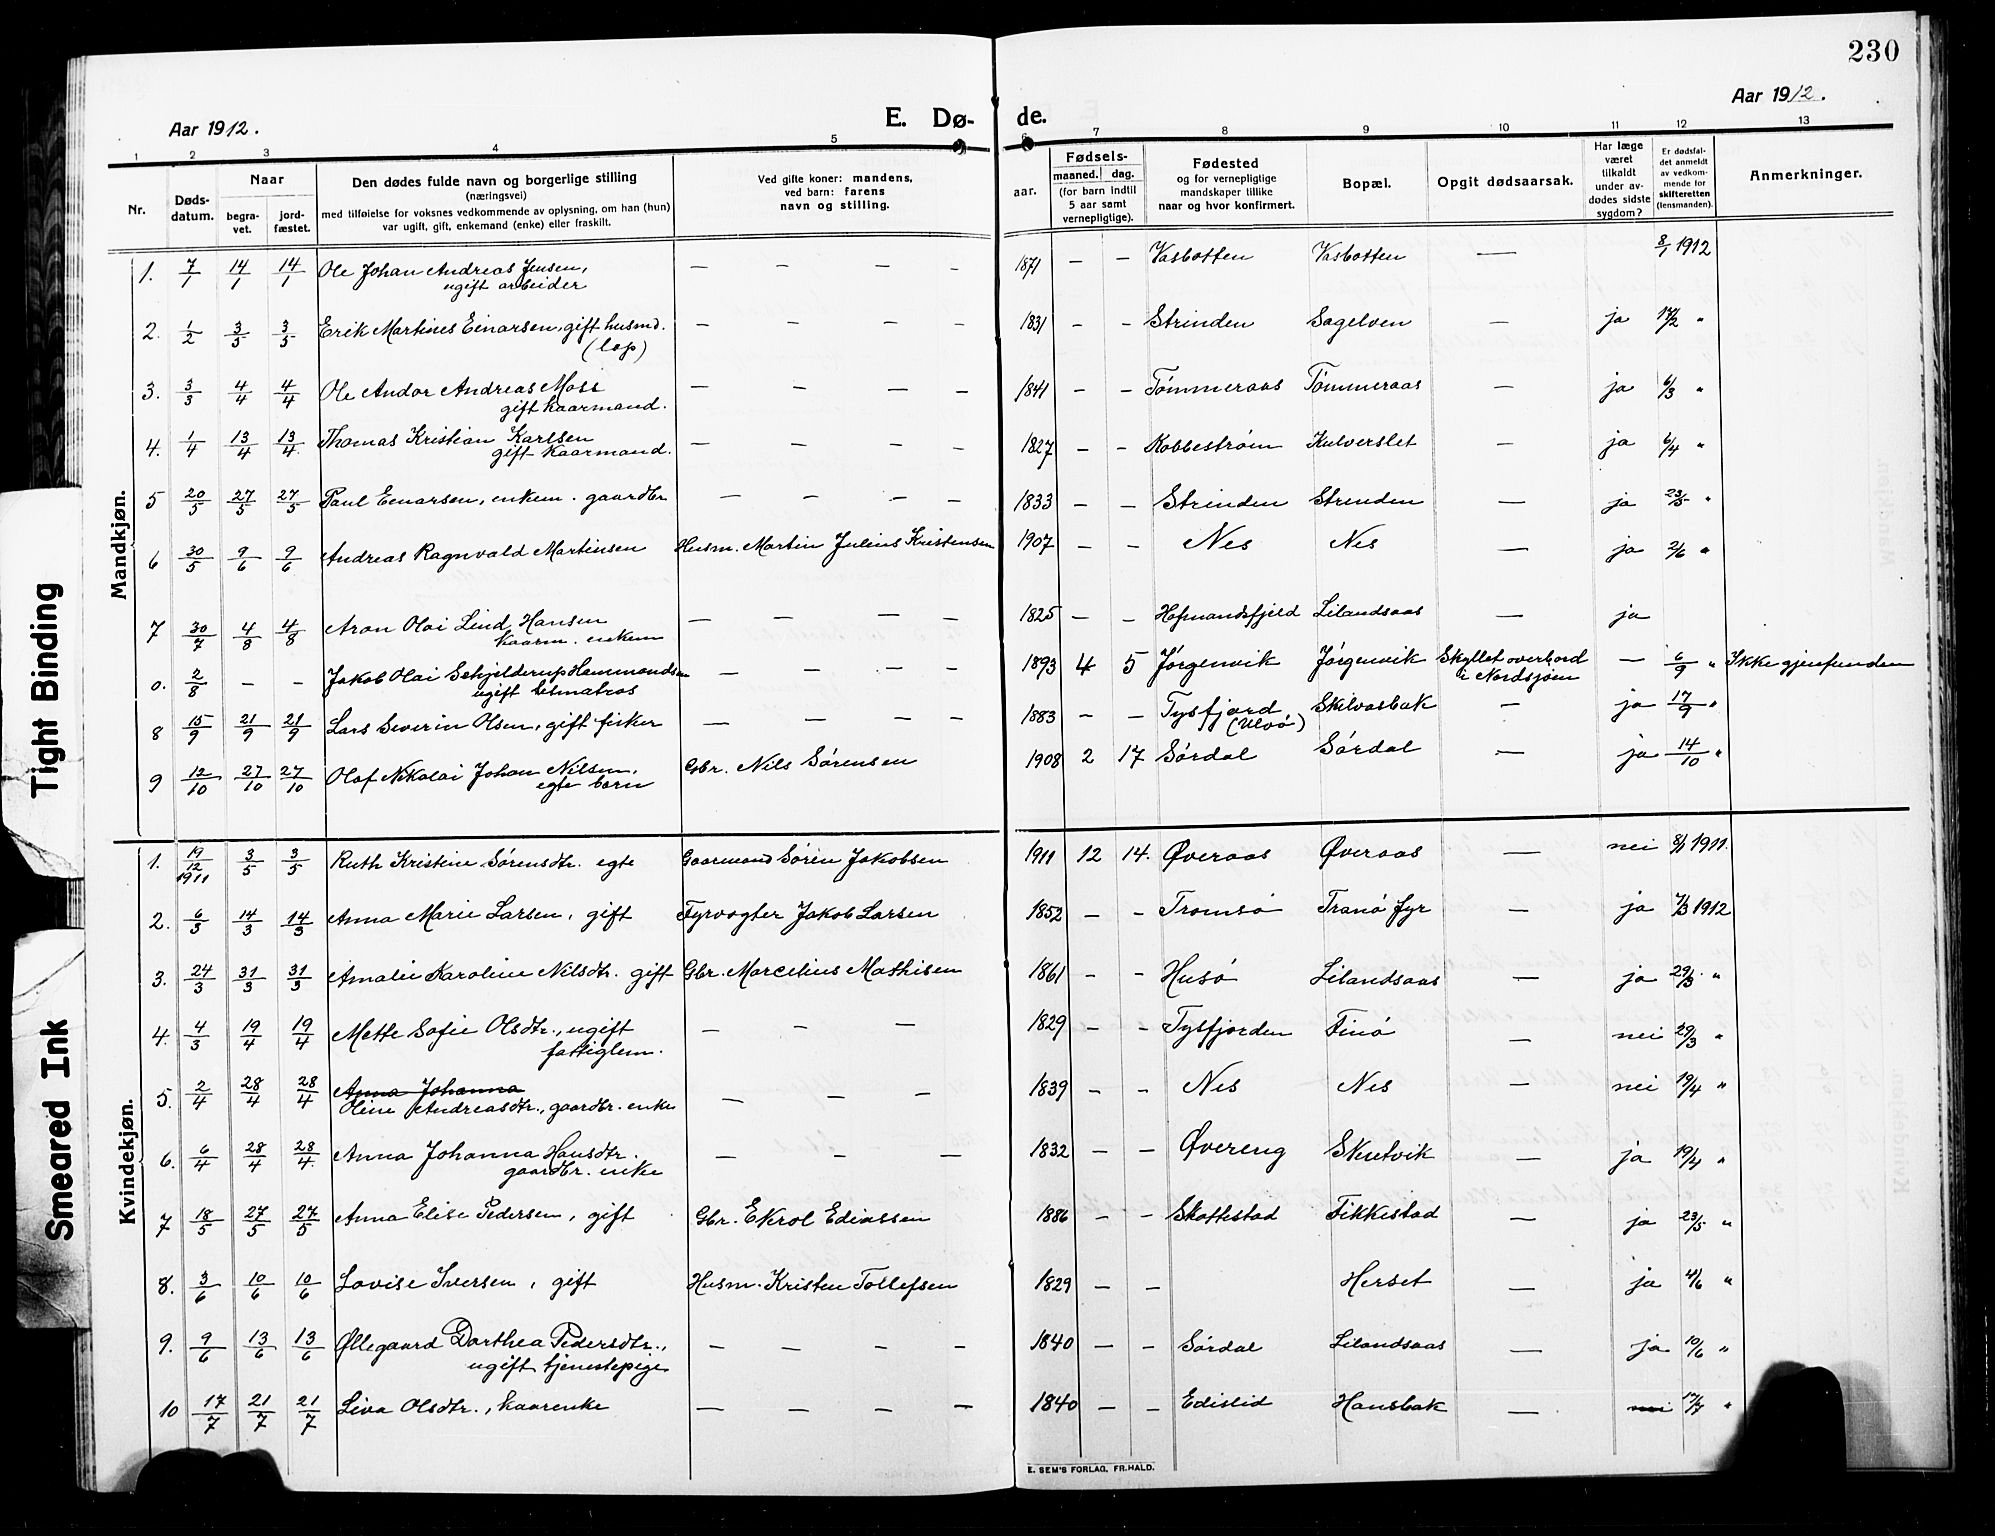 230
Aar 1912.
E. Dø-
de.
Aar 1912.
1 2 3 4 5 6 7 8 9 10 11 12 13
Nr.
Døds-
datum.
Naar
begra-
vet.
jord-
fæstet.
Den dødes fulde navn og borgerlige stilling
(næringsvei)
med tilføielse for voksnes vedkommende av oplysning, om han (hun)
var ugift, gift, enkemand (enke) eller fraskilt.
Ved gifte koner: mandens,
ved barn: farens
navn og stilling.
aar.
Fødsels-
maaned. dag.
(for barn indtil
5 aar samt
vernepligtige).
Fødested
og for vernepligtige
mandskaper tillike
naar og hvor konfirmert.
Bopæl.
Opgit dødsaarsak.
Har læge
været
tilkaldt
under av-
dødes sidste
sygdom?
Er dødsfal-
det anmeldt
av vedkom-
mende for
skifteretten
(lensmanden).
Anmerkninger.
Mandkjøn.
1. 7/1 14/1 14/1 Ole Johan Andreas Jensen, — — — — 1871 — — Vasbotten Vasbotten — 8/1 1912
ugift arbeider
2. 1/2 3/5 3/5 Erik Martines Einarsen, gift husmd. — — — — 1831 — — Strinden Sagelven — ja 12/2 "
(lap)
3. 3/3 4/4 4/4 Ole Andor Andreas Moss — — — — 1841 — — Tømmeraas Tømmeraas — ja 6/3 "
gift kaarmand.
4. 1/4 13/4 13/4 Thomas Kristian Karlsen — — — — 1827 — — Kobbestrøm Kulverslet — ja 6/4 "
gift kaarmand.
5 20/5 27/5 27/5 Paul Einarsen, enkem. gaardbr — — — — 1833 — — Strinden Strinden — ja 23/5 "
6 30/5 9/6 9/6 Andreas Ragnvald Martinsen Husm. Martin Julius Kristensen 1907 — — Nes Nes — ja 2/6 "
7 30/7 4/8 4/8 Aron Olai Lind Hansen — — — — 1825 — — Hofmandsfjeld Lilandsaas — ja
kaarm. enkem
0. 2/8 — — Jakob Olai Schjelderup Hammondsen — — — 1893 4 5 Jørgenvik Jørgenvik Skyllet overbord — 6/9 " Ikke gjenfunden
ugift letmatros i Nordsjøen
8 15/9 21/9 21/9 Lars Severin Olsen, gift fisker — — — — 1883 — — Tysfjord Skilvasbak — ja 17/9 "
(Ulvø)
9 12/10 27/10 27/10 Olaf Nikolai Johan Nilsen, Gbr. Nils Sørensen 1908 2 17 Sørdal Sørdal — ja 14/10 "
egte barn
Kvindekjøn.
1. 19/12 1911 3/5 3/5 Ruth Kristine Sørensdtr. egte Gaarmand Søren Jakobsen 1911 12 14. Øveraas Øveraas — nei 8/1 1911.
2. 6/3 14/3 14/3 Anna Marie Larsen, gift Fyrvogter Jakob Larsen 1852 — — Tromsø Tranø fyr — ja 7/3 1912
3. 24/3 31/3 31/3 Amalie Karoline Nilsdtr. gift Gbr. Marcelius Mathisen 1861 — — Husø Lilandsaas — ja 29/3. "
4. 4/3 19/4 19/4 Mette Sofie Olsdtr., ugift — — — 1829 — — Tysfjorden Finø — nei 29/3 "
fattiglem.
5. 2/4 28/4 28/4 Anna Johanna — — — 1839 — — Nes Nes — nei 19/4 "
Oline Andreasdtr., gaardbr. enke
6. 6/4 28/4 28/4. Anna Johanna Hansdtr. — — — 1832 — — Øvereng Skutvik — ja 19/4 "
gaardbr. enke
7 18/5 27/5 27/5 Anna Elise Pedersen, gift Gbr. Ekrol Ediassen 1886 — — Skottestad Fikkestad — ja 23/5 "
8. 3/6 10/6 10/6 Lovise Iversen, gift Husm. Kristen Tollefsen 1829 — — Herset — ja 4/6 "
9. 9/6 13/6 13/6 Øllegaard Dorthea Pedersdtr., — — — — 1840 — — Sørdal Lilandsaas — ja 10/6 "
ugift tjenestepige
10 17/7 21/7 21/7 Liva Olsdtr., kaarenke — — — — 1840 — — Edislid Hansbak — nei 17/7 "
E. SEM'S FORLAG, FR.HALD.
Tight Binding
Smeared Ink